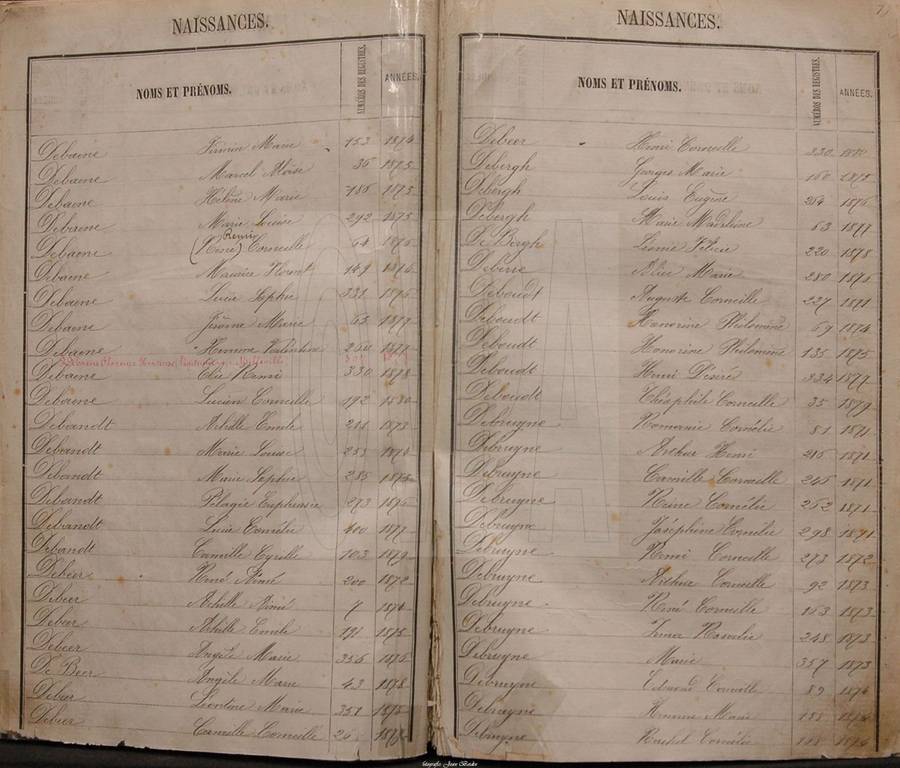 NAISSANCES.
NOMS ET PRÉNOMS. NUMÉROS DES REGISTRES. ANNÉES.
Debaene Firmin Marie 153 1874
Debaene Marcel Aloïse 36 1875
Debaene Hélène Marie 186 1875
Debaene Marie Louise 292 1875
Debaene (Désiré) Remie Corneille 64 1876
Debaene Maurice Florent 149 1876
Debaene Lucie Sophie 331 1876
Debaene Marie 63 1877
Debaene Valentine 260 1877
Debaene Elie Henri 330 1878
Debaene Lucien Corneille 192 1880
Debandt Achille Emile 1873
Debandt Marie Louise 253 1874
Debandt Marie Sophie 285 1873
Debandt Pélagie Euphrasie 273 1876
Debandt Lucie Cornélie 400 1877
Debandt Camille Cyrille 103 1879
Debeer René Aimé 200 1872
Debeer Achille Aimé 7 1874
Debeer Achille Emile 191 1875
Debeer Angèle Marie 356 1876
De Beer Angèle Marie 43 1878
Debeer Léontine Marie 351 1878
Debeer Camille Corneille
NAISSANCES.
NOMS ET PRÉNOMS. NUMÉROS DES REGISTRES. ANNÉES.
Debeer Henri Corneille 230
Debergh Georges Marie 160 1875
Debergh Louis Eugène 284 1876
Debergh Marie Madeleine 63 1877
De Bergh Léonie 220 1878
Marie 280 1876
Deboudt Auguste Corneille 227 1871
Deboudt Honorine Philomène 69 1874
Deboudt Honorine Philomène 135 1875
Deboudt Henri Désiré 334 1877
Deboudt Théophile Corneille 35 1879
Debruyne Romanie Cornélie 81 1871
Debruyne Arthur Henri 216 1871
Debruyne Camille Corneille 245 1871
Debruyne Reine Cornélie 262 1871
Debruyne Joséphine Cornélie 298 1871
Debruyne Remi Corneille 273 1872
Debruyne Arthur Corneille 92 1873
Debruyne René Corneille 163 1873
Debruyne Irma Rosalie 248 1873
Debruyne Marie 357 1873
Debruyne Edouard Corneille 89 1874
Debruyne Marie 1874
Debruyne Rachel Cornélie 1874
fotografie: Jean Baidon